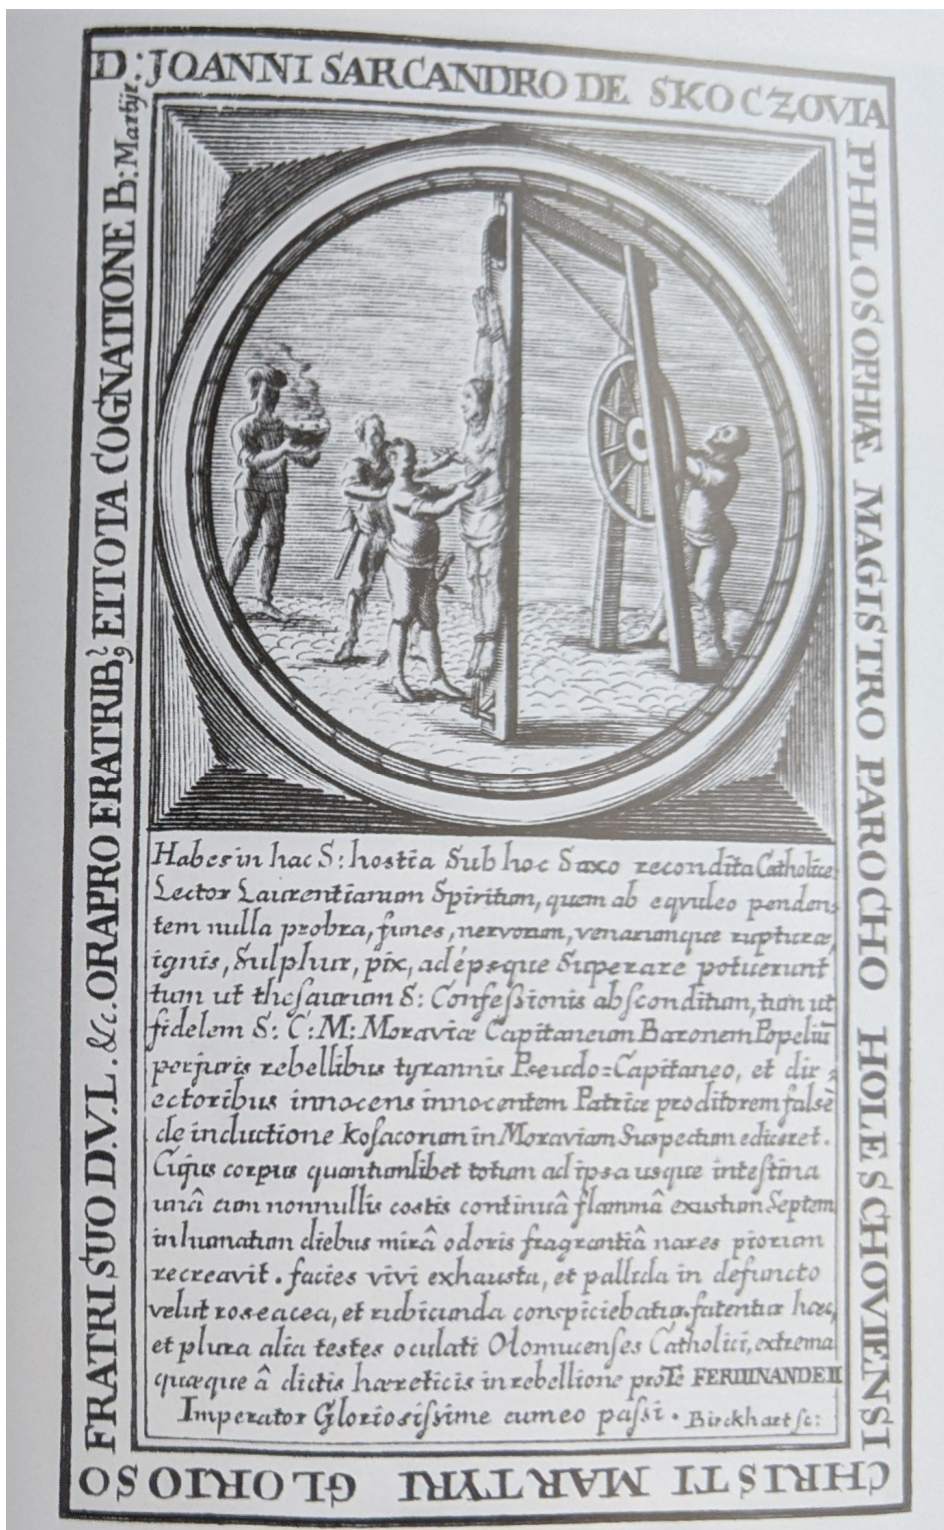 D: JOANNI SARCANDRO DE SKOCZOVIA
PHILOSOPHIÆ MAGISTRO PAROCHO HOLESCHOVIENSI
CHRISTI MARTYRI GLORIOSO
FRATRI SUO D.V.L. &c. ORA PRO FRATRIB9, ET TOTA COGNATIONE B: Martyr
Habes in hac S: hostia Sub hoc Saxo recondita Catholice
Lector Laurentianum Spiritum, quem ab eqvuleo penden,
tem nulla probra, funes, nervorum, venarumque rupturæ,
ignis, Sulphur, pix, adépsque Superare potuerunt
tum ut thesaurum S: Confeſsionis abſconditum, tum ut
fidelem S: C: M: Moraviæ Capitaneum Baronem Popeliū
perjuris rebellibus tyrannis Pseudo=Capitaneo, et dir=
ectoribus innocens innocentem Patriæ proditorem falsè
de inductione Koſacorum in Moraviam Suspectum ediceret.
Cujus corpus quantumlibet totum ad ipsa usque inteſtina
unâ cum nonnullis costis continuâ flammâ exustum Septem
inhumatum diebus mirâ odoris fragrantiâ nares piorum
recreavit. facies vivi exhausta, et pallida in defuncto
velut roseacea, et rubicunda conspiciebatur, fatentur hæc,
et plura alia testes oculati Olomucenſes Catholici, extrema
quæque â dictis hæreticis in rebellione pro Te FERDINANDE II
Imperator Glorioſiſsime cum eo paſsi. Birckhart ſc: